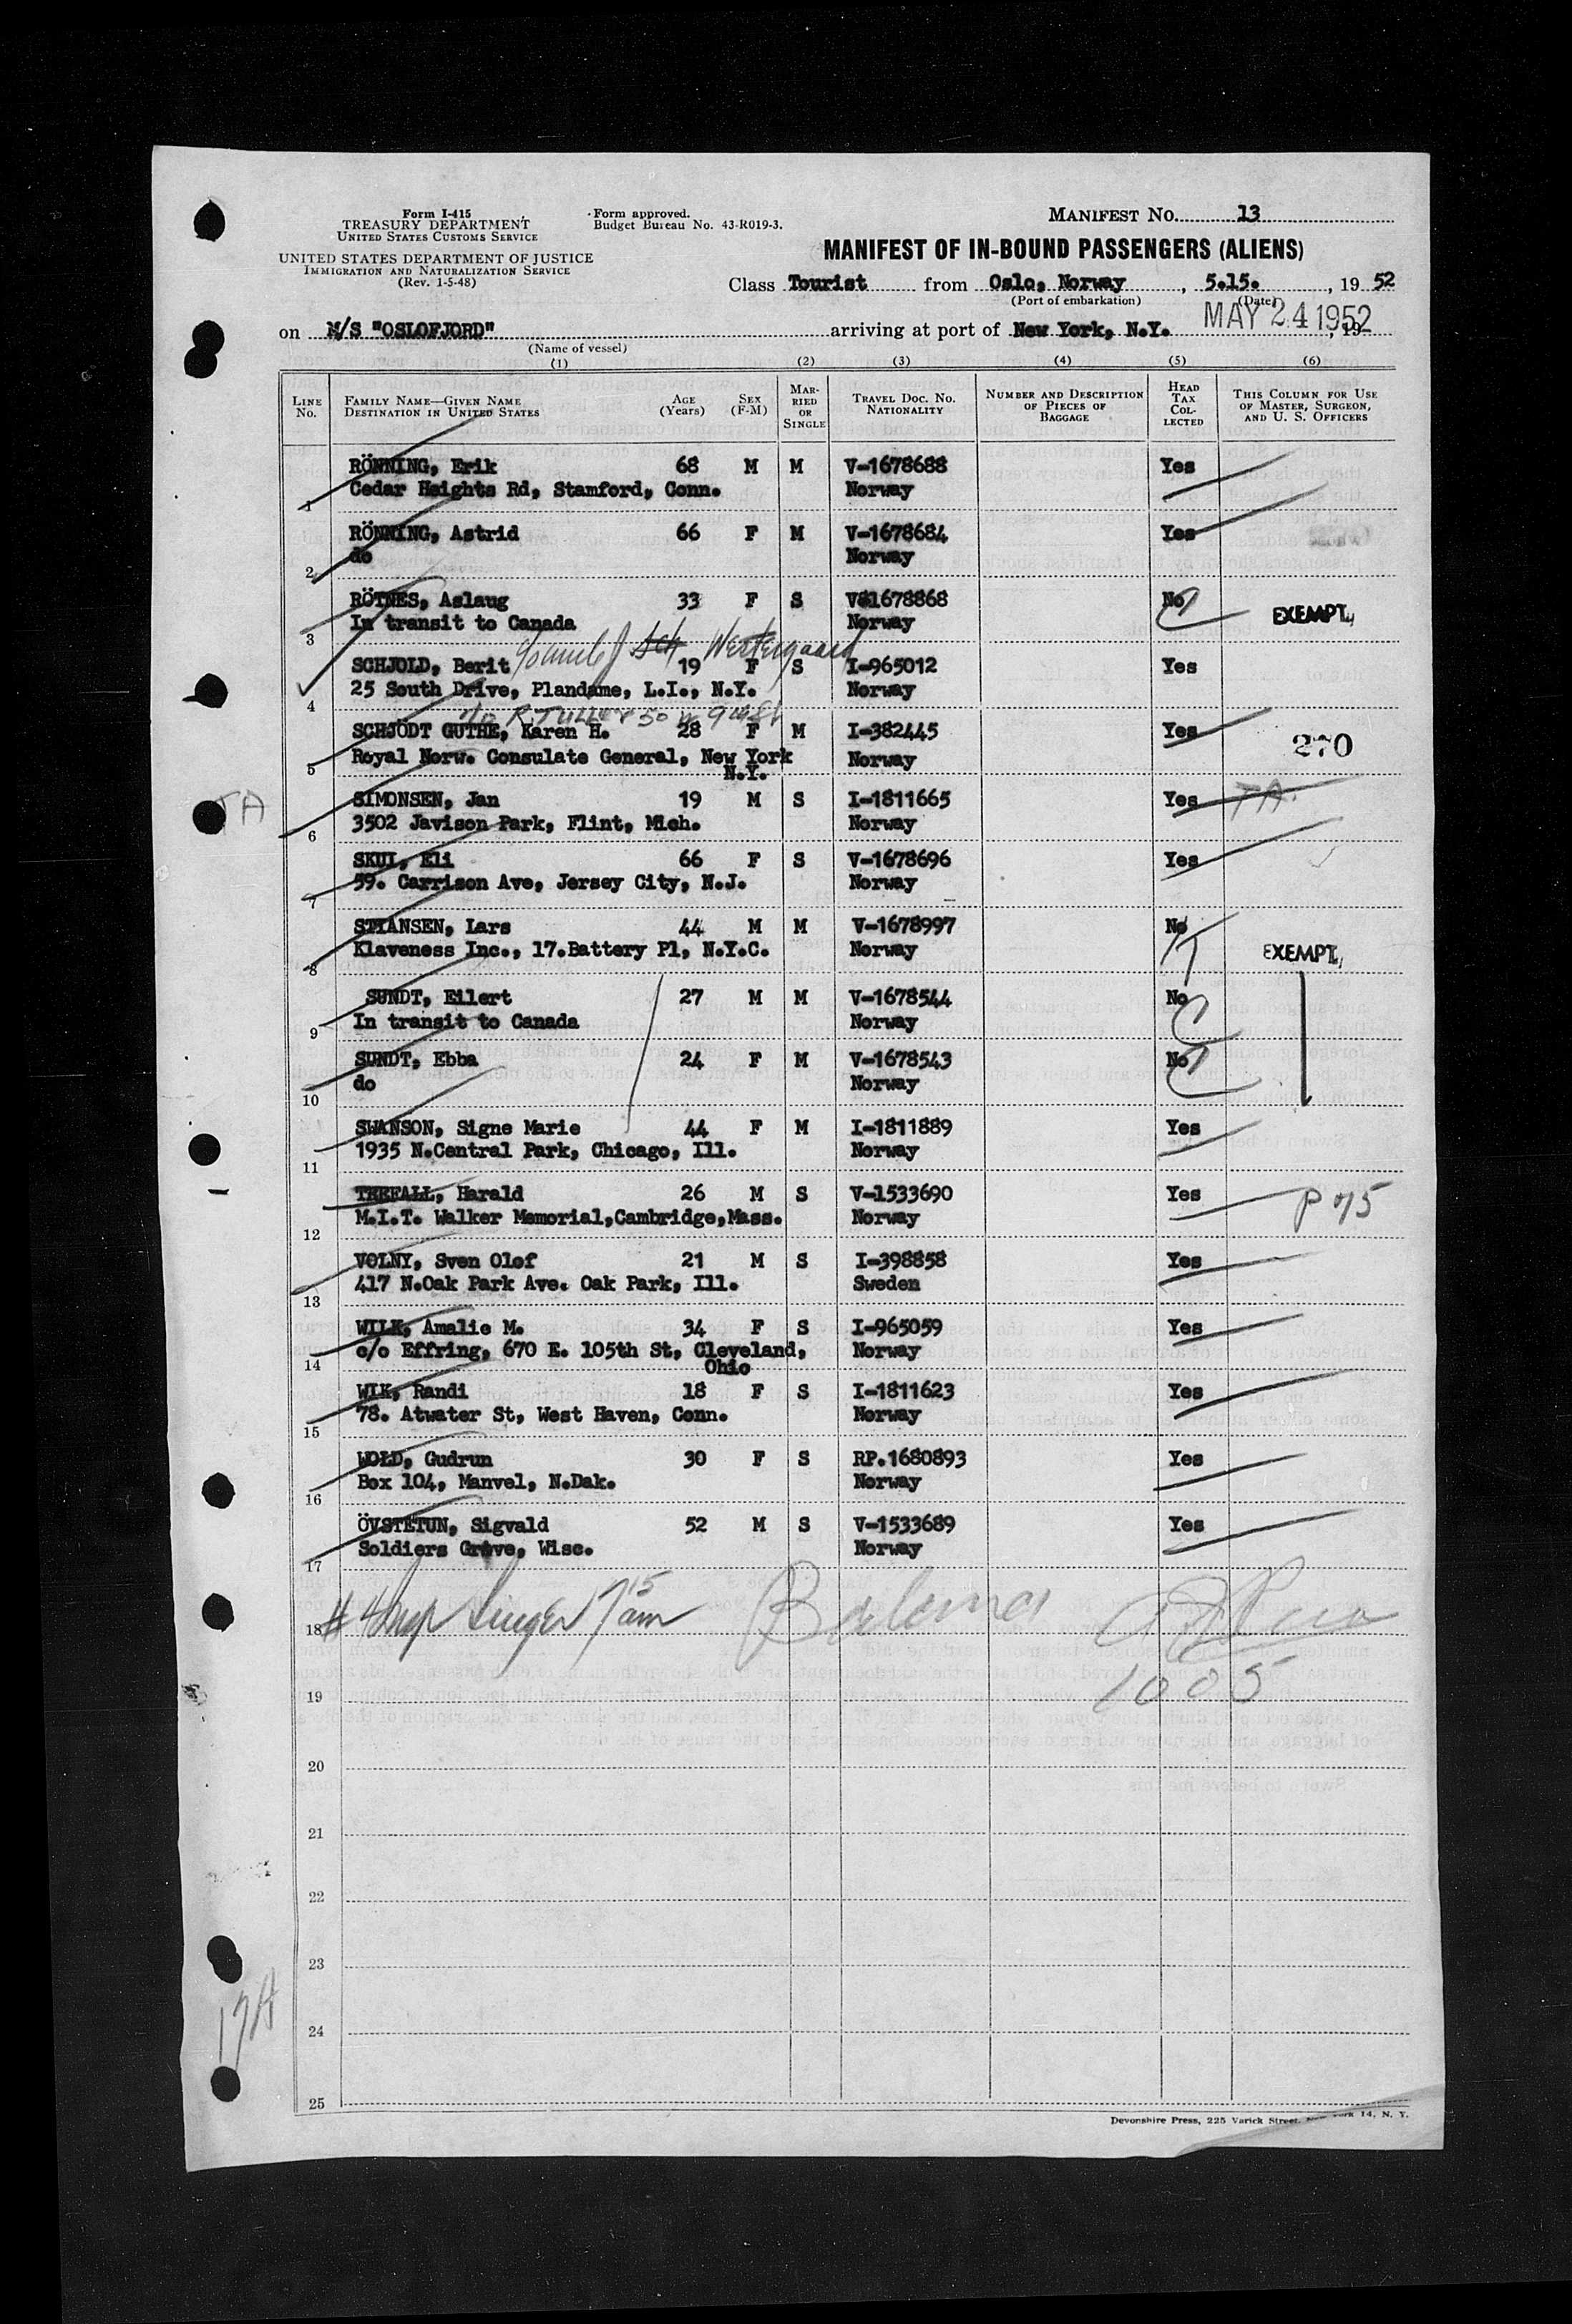 Form I-415
TREASURY DEPARTMENT
UNITED STATES CUSTOMS SERVICE
UNITED STATES DEPARTMENT OF JUSTICE
IMMIGRATION AND NATURALIZATION SERVICE
(Rev. 1-5-48)
Form approved.
Budget Bureau No. 43-R019-3.
MANIFEST NO. 13
MANIFEST OF IN-BOUND PASSENGERS (ALIENS)
Class Tourist from Oslo, Norway, 5.15., 19 52
(Port of embarkation) (Date)
on M/S "OSLOFJORD" arriving at port of New York, N.Y. MAY 24 1952, 19
(Name of vessel)
(1) (2) (3) (4) (5) (6)
LINE NO. FAMILY NAME—GIVEN NAME DESTINATION IN UNITED STATES AGE (Years) SEX (F-M) MARRIED OR SINGLE TRAVEL DOC. NO. NATIONALITY NUMBER AND DESCRIPTION OF PIECES OF BAGGAGE HEAD TAX COLLECTED THIS COLUMN FOR USE OF MASTER, SURGEON, AND U. S. OFFICERS
RÖNNING, Erik 68 M M V-1678688 Yes
1 Cedar Heights Rd, Stamford, Conn. Norway
RÖNNING, Astrid 66 F M V-1678684 Yes
2 do Norway
RÖTNES, Aslaug 33 F S V-1678868 No EXEMPT
3 In transit to Canada Norway
Westergaard
SCHJOLD, Berit 19 F S I-965012 Yes
4 25 South Drive, Plandame, L.I., N.Y. Norway
SCHJÖDT GUTHE, Karen H. 28 F M I-382445 Yes 270
5 Royal Norw. Consulate General, New York N.Y. Norway
TA SIMONSEN, Jan 19 M S I-1811665 Yes TA.
6 3502 Javison Park, Flint, Mich. Norway
SKUI, Eli 66 F S V-1678696 Yes
7 59. Carrison Ave, Jersey City, N.J. Norway
STIANSEN, Lars 44 M M V-1678997 No EXEMPT
8 Klaveness Inc., 17.Battery Pl, N.Y.C. Norway
SUNDT, Eilert 27 M M V-1678544 No
9 In transit to Canada Norway
SUNDT, Ebba 24 F M V-1678543 No
10 do Norway
SWANSON, Signe Marie 44 F M I-1811889 Yes
11 1935 N.Central Park, Chicago, Ill. Norway
TREFALL, Harald 26 M S V-1533690 Yes
12 M.I.T. Walker Memorial,Cambridge,Mass. Norway
VOLNY, Sven Olof 21 M S I-398858 Yes
13 417 N.Oak Park Ave. Oak Park, Ill. Sweden
WILK, Amalie M. 34 F S I-965059 Yes
14 c/o Effring, 670 E. 105th St, Cleveland, Ohio Norway
WIK, Randi 18 F S I-1811623 Yes
15 78. Atwater St, West Haven, Conn. Norway
WOLD, Gudrun 30 F S RP.1680893 Yes
16 Box 104, Manvel, N.Dak. Norway
ÖVSTETUN, Sigvald 52 M S V-1533689 Yes
17 Soldiers Grove, Wisc. Norway
18
19 1005
20
21
22
23
17A
24
25
Devonshire Press, 225 Varick Street, New York 14, N. Y.